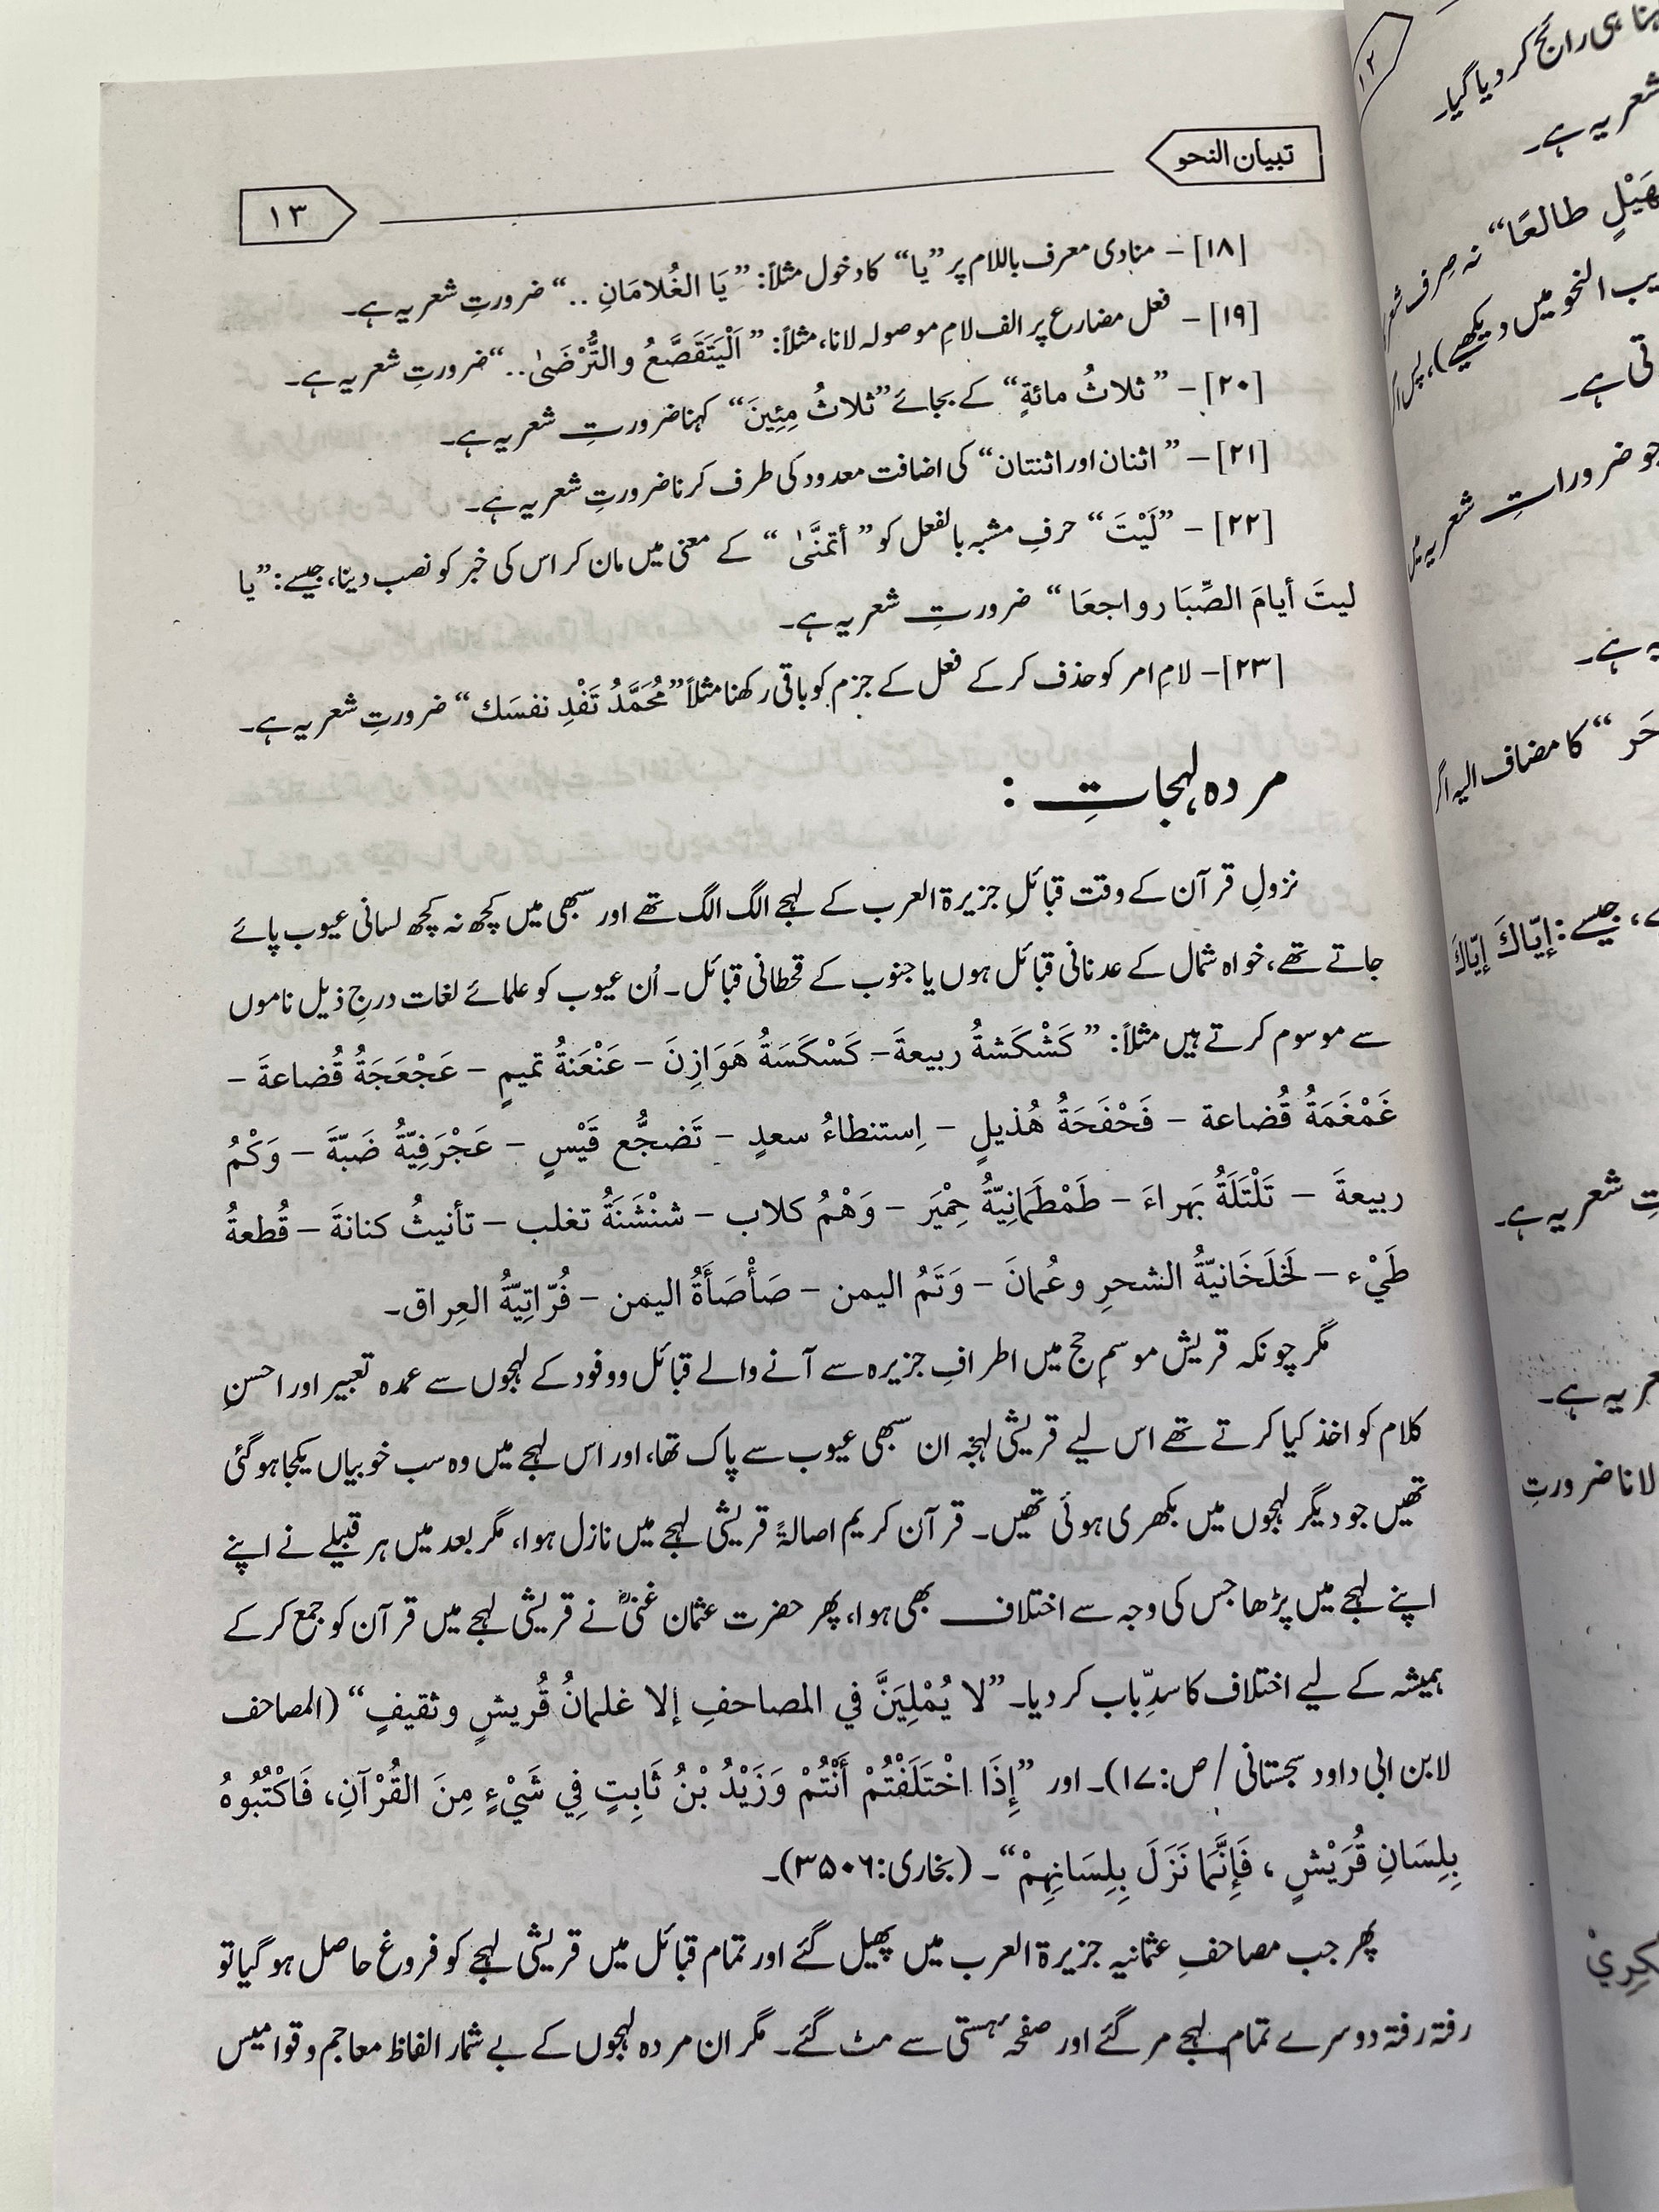 تبیان النحو
۱۳
[۱۸] – منادی معرف باللام پر ”یا“ کا دخول مثلاً: ”يَا الغُلامَانِ ..“ ضرورتِ شعریہ ہے۔
[۱۹] – فعل مضارع پر الف لامِ موصولہ لانا، مثلاً: ”اَلْيَتَقَصَّعُ و التُّرْضَىٰ..“ ضرورتِ شعریہ ہے۔
[۲۰] – ”ثلاثُ مائةٍ“ کے بجائے ”ثلاثُ مِئِينَ“ کہنا ضرورتِ شعریہ ہے۔
[۲۱] – ”اثنان اور اثنتان“ کی اضافت معدود کی طرف کرنا ضرورتِ شعریہ ہے۔
[۲۲] – ”لَيْتَ“ حرفِ مشبہ بالفعل کو ”أتمنَّىٰ“ کے معنی میں مان کر اس کی خبر کو نصب دینا، جیسے: ”يا
ليتَ أيامَ الصِّبَا رواجعَا“ ضرورتِ شعریہ ہے۔
[۲۳] – لامِ امر کو حذف کر کے فعل کے جزم کو باقی رکھنا مثلاً ”مُحَمَّدُ تَفْدِ نفسَك“ ضرورتِ شعریہ ہے۔
مردہ لہجات :
نزولِ قرآن کے وقت قبائلِ جزیرۃ العرب کے لہجے الگ الگ تھے اور سبھی میں کچھ نہ کچھ لسانی عیوب پائے
جاتے تھے، خواہ شمال کے عدنانی قبائل ہوں یا جنوب کے قحطانی قبائل۔ اُن عیوب کو علمائے لغات درجِ ذیل ناموں
سے موسوم کرتے ہیں مثلاً: ”كَشْكَشةُ ربيعةَ – كَسْكَسَةُ هَوَازِنَ – عَنْعَنةُ تميمٍ – عَجْعَجَةُ قُضاعةَ –
غَمْغَمَةُ قُضاعة – فَحْفَحَةُ هُذيلٍ – اِستنطاءُ سعدٍ – تَضجُّع قَيْسٍ – عَجْرَفِيّةُ ضَبّةَ – وَكْمُ
ربيعةَ – تَلْتَلَةُ بَهراءَ – طَمْطَمَانِيّةُ حِمْيَر – وَهْمُ كلاب – شنْشَنَةُ تغلب – تأنيثُ كنانةَ – قُطعةُ
طَيْء – لَخلَخَانيّةُ الشحرِ وعُمانَ – وَتَمُ اليمن – صَأْصَأَةُ اليمن – فُرّاتِيّةُ العِراق۔
مگر چونکہ قریش موسمِ حج میں اطرافِ جزیرہ سے آنے والے قبائل و وفود کے لہجوں سے عمدہ تعبیر اور احسنِ
کلام کو اخذ کیا کرتے تھے اس لیے قریشی لہجہ ان سبھی عیوب سے پاک تھا، اور اس لہجے میں وہ سب خوبیاں یکجا ہو گئی
تھیں جو دیگر لہجوں میں بکھری ہوئی تھیں۔ قرآن کریم اصالۃً قریشی لہجے میں نازل ہوا، مگر بعد میں ہر قبیلے نے اپنے
اپنے لہجے میں پڑھا جس کی وجہ سے اختلاف بھی ہوا، پھر حضرت عثمان غنیؓ نے قریشی لہجے میں قرآن کو جمع کر کے
ہمیشہ کے لیے اختلاف کا سدِّ باب کر دیا۔ ”لا يُمْلِيَنَّ في المصاحفِ إلا غلمانُ قُريشٍ وثقيفٍ“ (المصاحف
لابن ابی داود سجستانی / ص:۱۷)۔ اور ”إِذَا اخْتَلَفْتُمْ أَنْتُمْ وَزَيْدُ بْنُ ثَابِتٍ فِي شَيْءٍ مِنَ القُرْآنِ، فَاكْتُبُوهُ
بِلِسَانِ قُرَيْشٍ ، فَإِنَّمَا نَزَلَ بِلِسَانِهِمْ“۔ (بخاری:۳۵۰۶)۔
پھر جب مصاحفِ عثمانیہ جزیرۃ العرب میں پھیل گئے اور تمام قبائل میں قریشی لہجے کو فروغ حاصل ہو گیا تو
رفتہ رفتہ دوسرے تمام لہجے مر گئے اور صفحۂ ہستی سے مٹ گئے۔ مگر ان مردہ لہجوں کے بے شمار الفاظ معاجم و قوامیس
۱۲
ہی رائج کر دیا گیا۔
شعریہ ہے۔
طالعًا“ نہ صرف
النحو میں دیکھیے)، پس
تی ہے۔
جو ضروراتِ شعریہ
ہے۔
“ کا مضاف الیہ
جیسے: إيّاكَ إيّاكَ
شعریہ ہے۔
ہے۔
لانا ضرورتِ